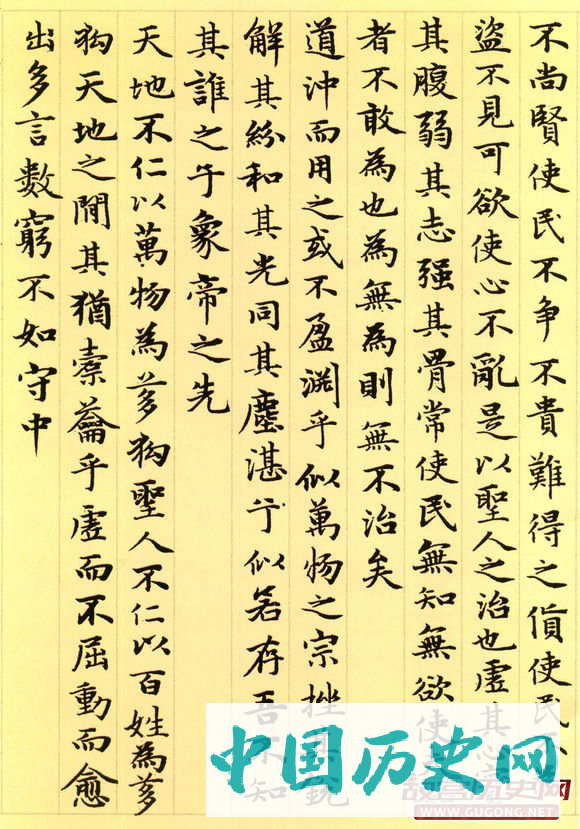 不尚賢使民不争不貴難得之貨使民
盜不見可欲使心不亂是以聖人之治也虛其心
其腹弱其志强其骨常使民無知無欲使
者不敢為也為無為則無不治矣
道沖而用之或不盈淵乎似萬物之宗挫銳
解其紛和其光同其塵湛兮似若存吾不知
其誰之子象帝之先
天地不仁以萬物為芻狗聖人不仁以百姓為芻
狗天地之間其猶橐籥乎虛而不屈動而愈
出多言數窮不如守中
中国历史网
故宫历史网
WWW.GUGONG.NET